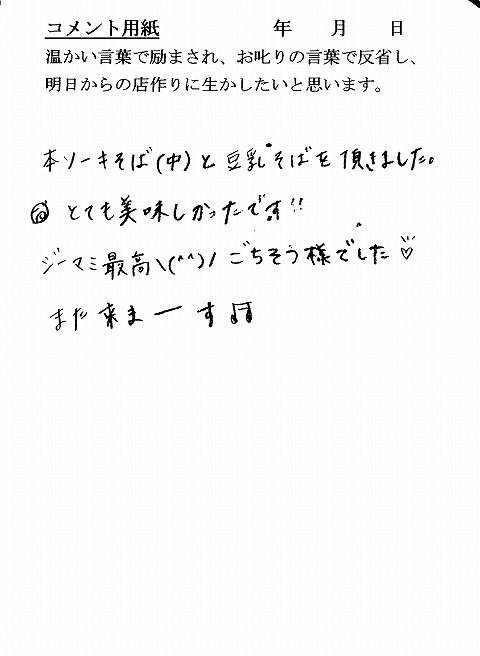 コメント用紙 年 月 日
温かい言葉で励まされ、お叱りの言葉で反省し、
明日からの店作りに生かしたいと思います。
本ソーキそば(中)と豆乳そばを頂きました。
とても美味しかったです!!
ジーマミ最高\(^^)/ ごちそう様でした♡
また来まーす♫